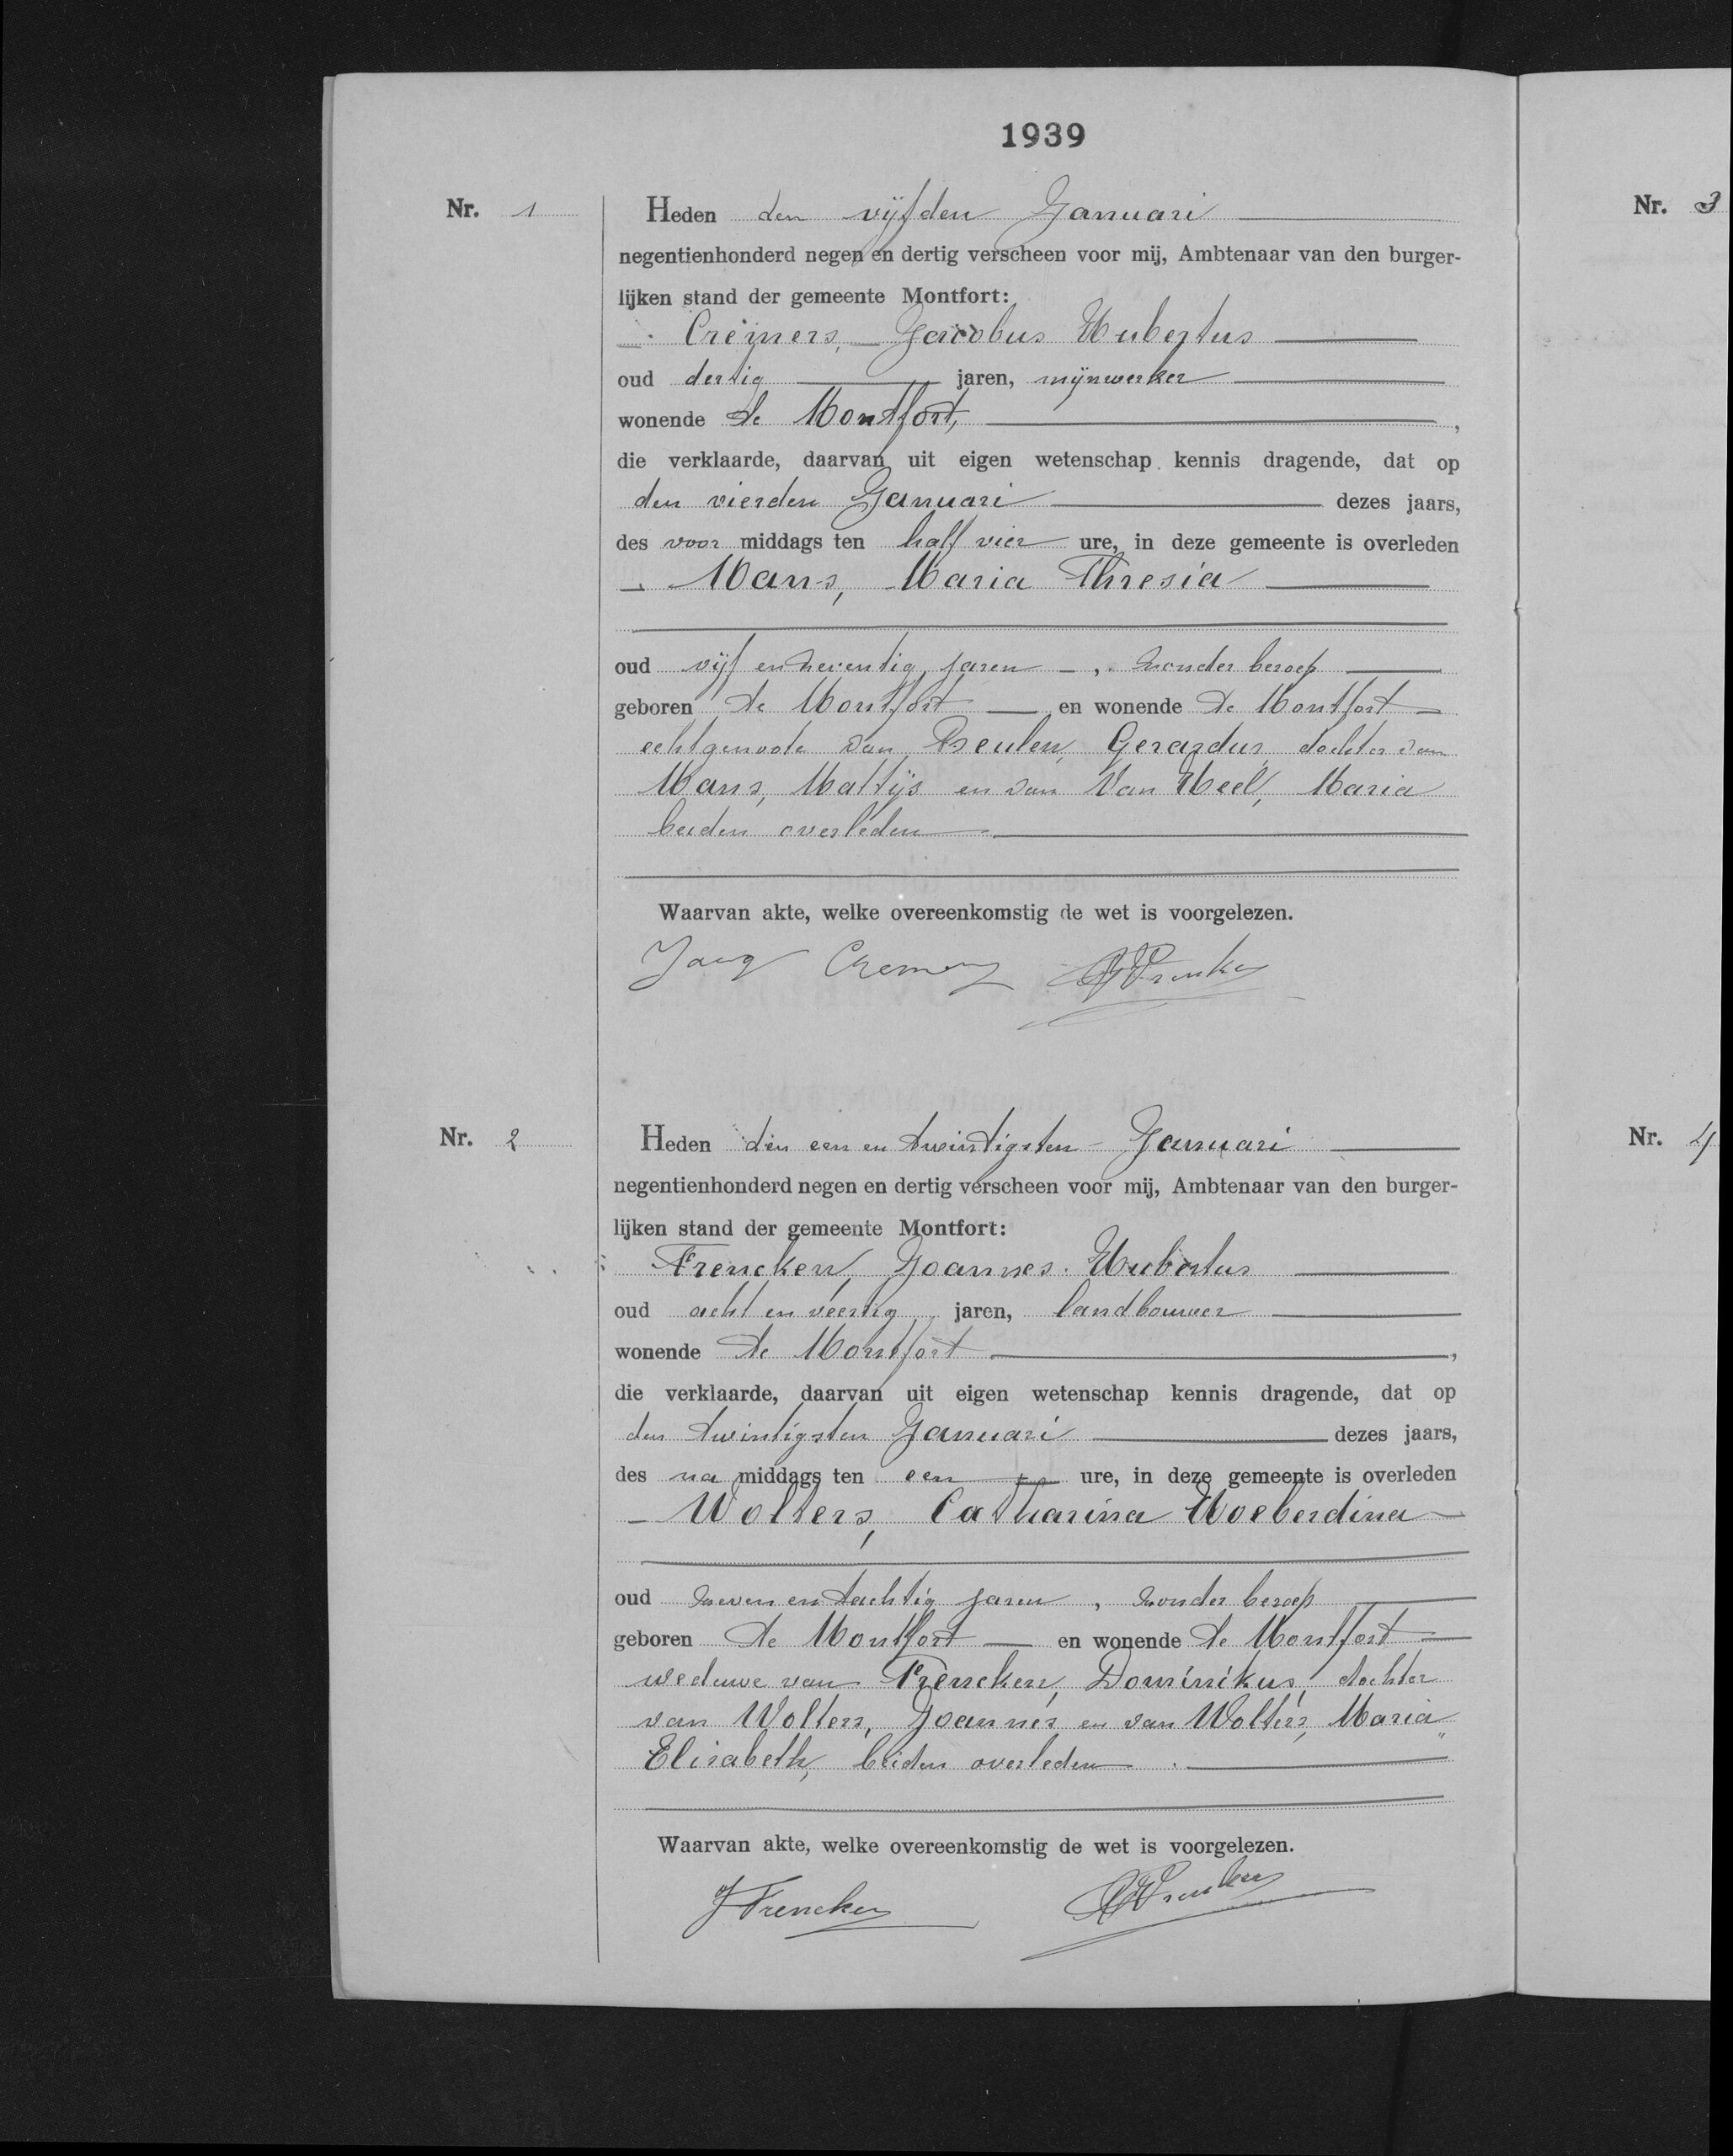 1939
Nr. 1
Heden den vijfden Januari
negentienhonderd negen en dertig verscheen voor mij, Ambtenaar van den burger-
lijken stand der gemeente Montfort:
Cremers, Jacobus Hubertus
oud dertig jaren, mijnwerker
wonende te Montfort,
die verklaarde, daarvan uit eigen wetenschap kennis dragende, dat op
den vierden Januari dezes jaars,
des voor middags ten half vier ure, in deze gemeente is overleden
Mans, Maria Thresia
oud vijf en zeventig jaren, zonder beroep
geboren te Montfort en wonende te Montfort
echtgenoote van Beulen, Gerardus, dochter van
Mans, Mattijs en van Van Meel, Maria
beiden overleden
Waarvan akte, welke overeenkomstig de wet is voorgelezen.
Jacq Cremers
Nr. 2
Heden den een en twintigsten Januari
negentienhonderd negen en dertig verscheen voor mij, Ambtenaar van den burger-
lijken stand der gemeente Montfort:
Frencken, Joannes Hubertus
oud acht en veertig jaren, landbouwer
wonende te Montfort,
die verklaarde, daarvan uit eigen wetenschap kennis dragende, dat op
den twintigsten Januari dezes jaars,
des na middags ten een ure, in deze gemeente is overleden
Wolters, Catharina Hoeberdina
oud zeven en tachtig jaren, zonder beroep
geboren te Montfort en wonende te Montfort
weduwe van Frencken, Dominikus, dochter
van Wolters, Joannes en van Wolters, Maria
Elisabeth, beiden overleden.
Waarvan akte, welke overeenkomstig de wet is voorgelezen.
J Frencken
Nr. 3
Nr. 4